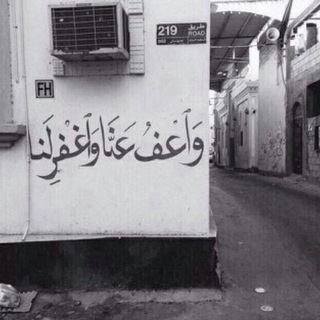 219 طريق
ROAD
FH
وَٱعْفُ عَنَّا وَٱغْفِرْ لَنَا